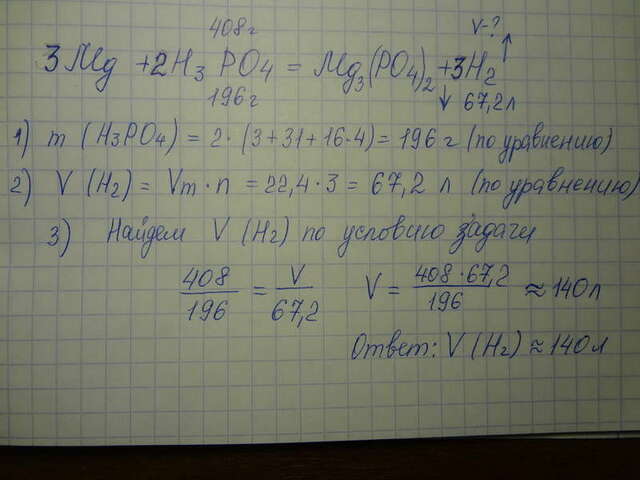 408г V-?
3Mg + 2H3PO4 = Mg3(PO4)2 + 3H2 ↑
196г ↓ 67,2л
1) m (H3PO4) = 2·(3+31+16·4) = 196 г (по уравнению)
2) V (H2) = Vm·n = 22,4·3 = 67,2 л (по уравнению)
3) Найдем V (H2) по условию задачи
408/196 = V/67,2 V = 408·67,2/196 ≈ 140л
Ответ: V (H2) ≈ 140л